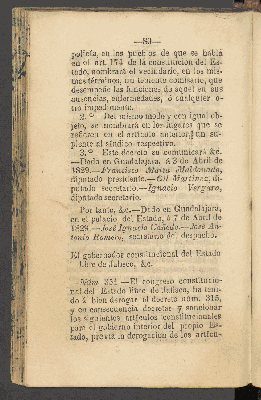 —80—
policía, en los pueblos de que se habla
en el art. 174 de la constitucion del Es-
tado, nombrará el vecindario, en los mis-
mos términos, un teniente comisario, que
desempeñe las funciones de aquel en sus
ausencias, enfermedades, ó cualquier o-
tro impedimento.
2.° Del mismo modo y con igual ob-
jeto, se nombrará en los lugares que se
refieren en el artículo anterior, un su-
plente al síndico respectivo.
3.° Este decreto se comunicará &c.
—Dado en Guadalajara, á 3 de Abril de
1829.—Francisco Maria Maldonado,
diputado presidente.—Gil Martinez, di-
putado secretario.—Ignacio Vergara,
diputado secretario.
Por tanto, &c.—Dado en Guadalajara,
en el palacio del Estado, á 7 de Abril de
1829.—José Ignacio Cañedo.—José An-
tonio Romero, secretario del despacho.
El gobernador constitucional del Estado
libre de Jalisco, &c.
Núm. —El congreso constitucio-
nal del Estado libre de Jalisco, ha teni-
do á bien derogar el decreto núm. 315,
y en consecuencia decretar y sancionar
los siguientes artículos constitucionales
para el gobierno interior del propio Es-
tado, prévia la derogacion de los artícu-